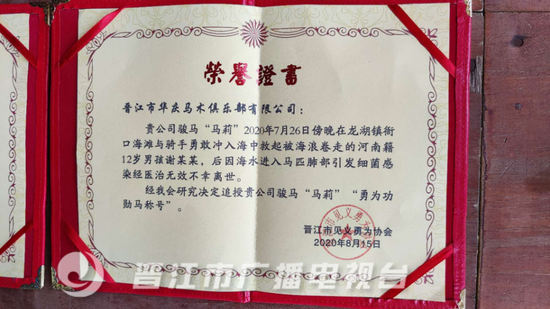 荣誉證書
晋江市华庆马术俱乐部有限公司：
贵公司骏马“马莉”2020年7月26日傍晚在龙湖镇衙
口海滩与骑手勇敢冲入海中救起被海浪卷走的河南籍
12岁男孩谢某某，后因海水进入马匹肺部引发细菌感
染经医治无效不幸离世。
经我会研究决定追授贵公司骏马“马莉”“勇为功
勋马称号”。
晋江市见义勇为协会
2020年8月15日
晋江市广播电视台